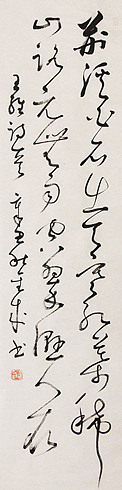 荆溪白石出天寒红叶稀
山路元无雨空翠湿人衣
王维诗